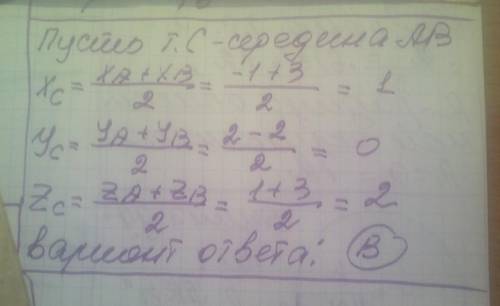 Пусть т. C - середина AB
x_C = (x_A + x_B)/2 = (-1+3)/2 = 1
y_C = (y_A + y_B)/2 = (2-2)/2 = 0
z_C = (z_A + z_B)/2 = (1+3)/2 = 2
вариант ответа: B